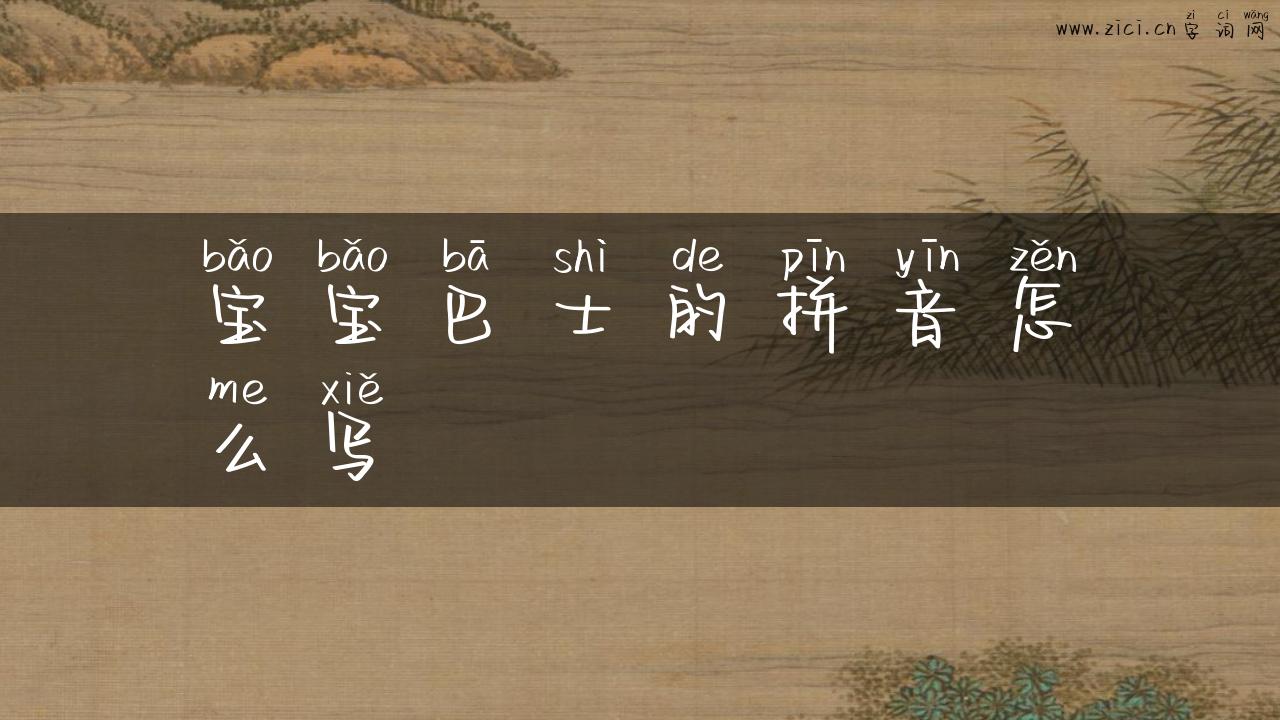 zì cí wǎng
www.zici.cn 字 词 网
bǎo bǎo bā shì de pīn yīn zěn
宝 宝 巴 士 的 拼 音 怎
me xiě
么 写